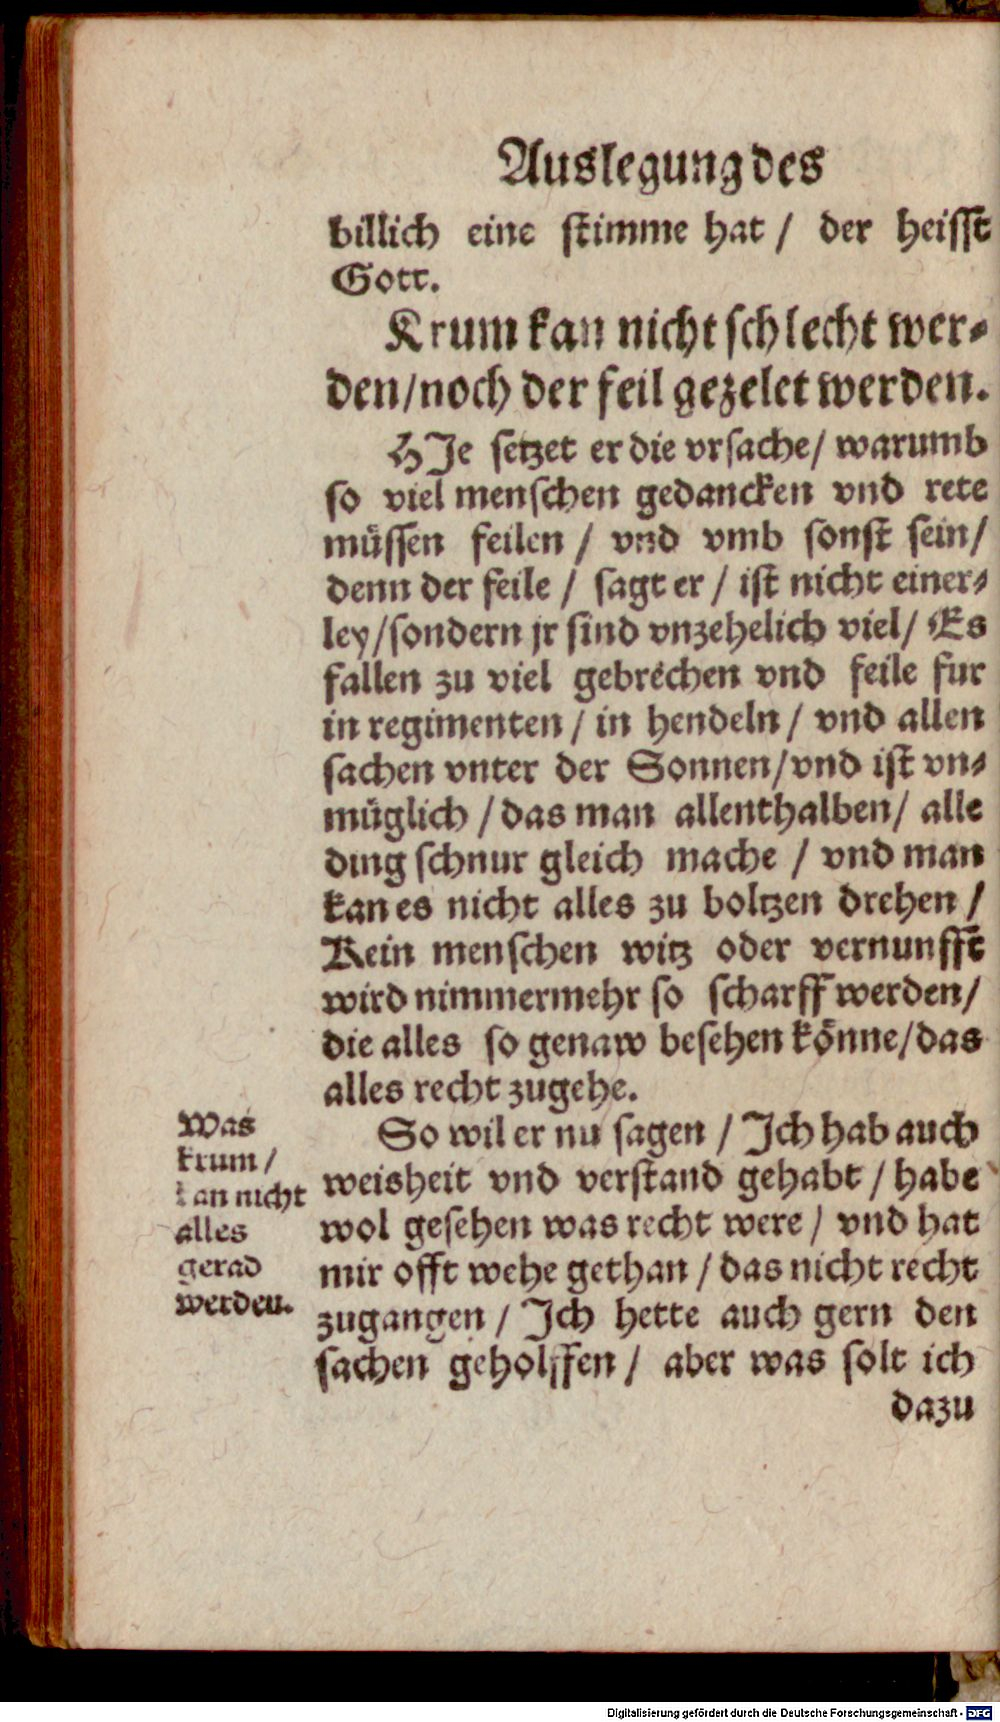 Auslegung des
billich eine stimme hat / der heisst
Gott.
Krum kan nicht schlecht wer-
den/noch der feil gezelet werden.
HJe setzet er die vrsache/ warumb
so viel menschen gedancken vnd rete
müssen feilen / vnd vmb sonst sein/
denn der feile / sagt er / ist nicht einer-
ley/sondern jr sind vnzehelich viel/ Es
fallen zu viel gebrechen vnd feile fur
in regimenten / in hendeln / vnd allen
sachen vnter der Sonnen/vnd ist vn-
müglich / das man allenthalben/ alle
ding schnur gleich mache / vnd man
kan es nicht alles zu boltzen drehen /
Kein menschen witz oder vernunfft
wird nimmermehr so scharff werden/
die alles so genaw besehen könne/das
alles recht zugehe.
So wil er nu sagen / Jch hab auch
weisheit vnd verstand gehabt / habe
wol gesehen was recht were / vnd hat
mir offt wehe gethan / das nicht recht
zugangen / Jch hette auch gern den
sachen geholffen / aber was solt ich
dazu
Was
krum /
kan nicht
alles
gerad
werden.
Digitalisierung gefördert durch die Deutsche Forschungsgemeinschaft - DFG